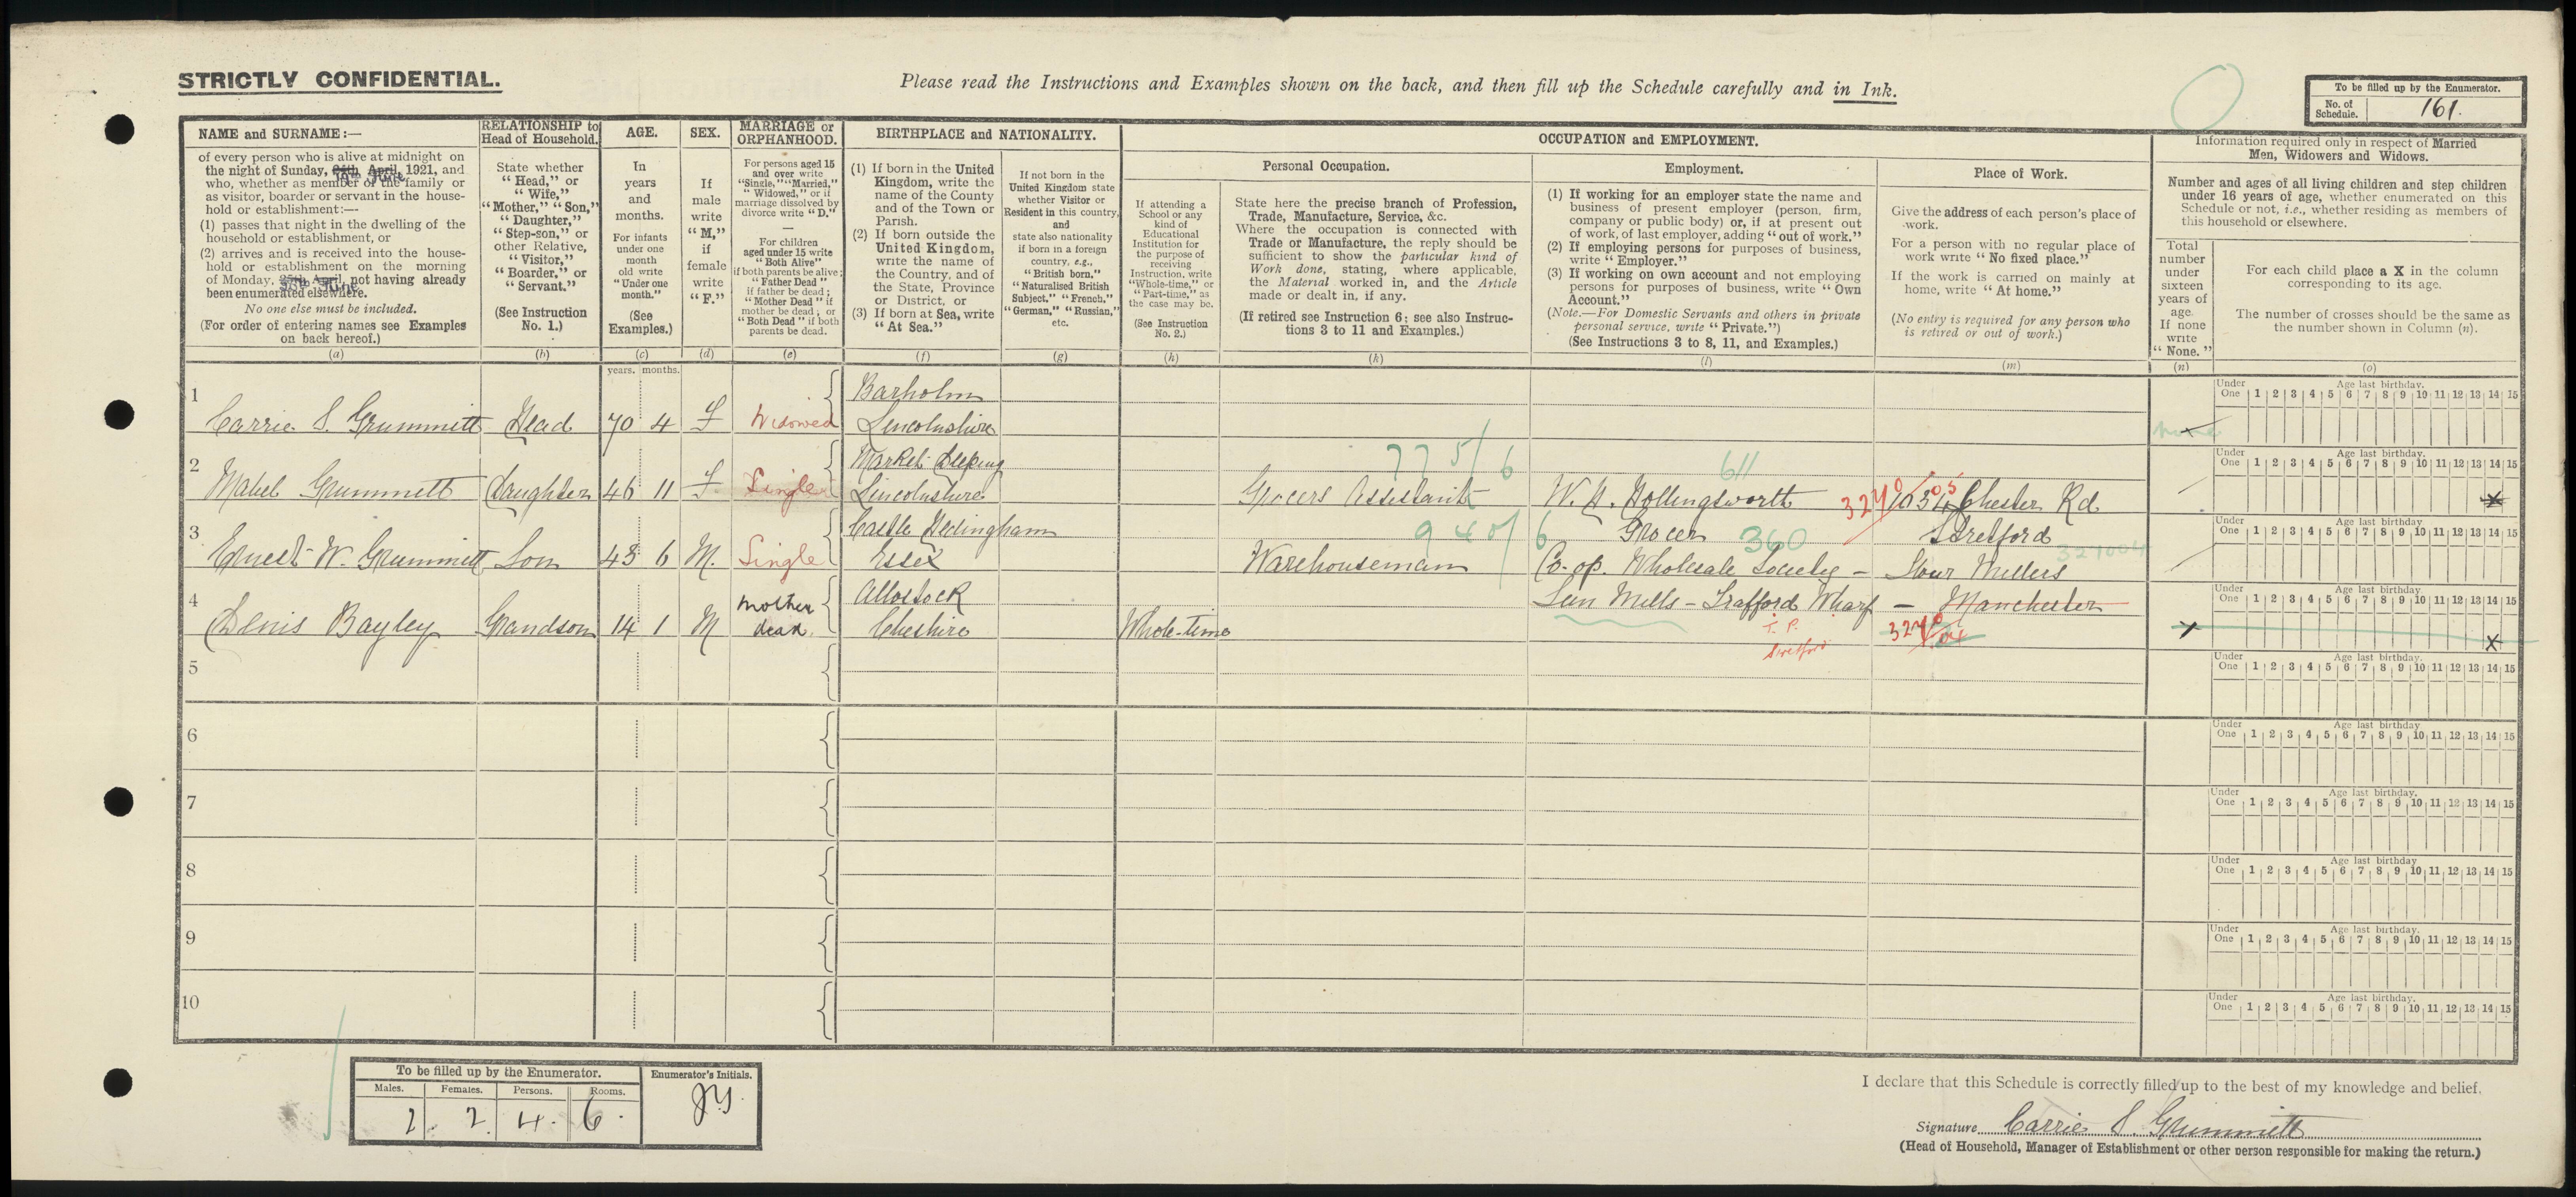 STRICTLY CONFIDENTIAL.
Please read the Instructions and Examples shown on the back, and then fill up the Schedule carefully and in Ink.
To be filled up by the Enumerator.
No. of Schedule. 161.
NAME and SURNAME:—
of every person who is alive at midnight on
the night of Sunday, 24th April, 1921, and
19th June
who, whether as member of the family or
as visitor, boarder or servant in the house-
hold or establishment:—
(1) passes that night in the dwelling of the
household or establishment, or
(2) arrives and is received into the house-
hold or establishment on the morning
of Monday, 25th April, not having already
been enumerated elsewhere.
No one else must be included.
(For order of entering names see Examples
on back hereof.)
(a)
RELATIONSHIP to
Head of Household.
State whether
"Head," or
"Wife,"
"Mother," "Son,"
"Daughter,"
"Step-son," or
other Relative,
"Visitor,"
"Boarder," or
"Servant."
(See Instruction
No. 1.)
(b)
AGE.
In
years
and
months.
For infants
under one
month
old write
"Under one
month."
(See
Examples.)
(c)
years. months.
SEX.
If
male
write
"M,"
if
female
write
"F."
(d)
MARRIAGE or
ORPHANHOOD.
For persons aged 15
and over write
"Single," "Married,"
"Widowed," or if
marriage dissolved by
divorce write "D."
—
For children
aged under 15 write
"Both Alive"
if both parents be alive;
"Father Dead"
if father be dead;
"Mother Dead" if
mother be dead; or
"Both Dead" if both
parents be dead.
(e)
BIRTHPLACE and NATIONALITY.
(1) If born in the United
Kingdom, write the
name of the County
and of the Town or
Parish.
(2) If born outside the
United Kingdom,
write the name of
the Country, and of
the State, Province
or District, or
(3) If born at Sea, write
"At Sea."
(f)
If not born in the
United Kingdom state
whether Visitor or
Resident in this country,
and
state also nationality
if born in a foreign
country, e.g.,
"British born,"
"Naturalised British
Subject," "French,"
"German," "Russian,"
etc.
(g)
OCCUPATION and EMPLOYMENT.
If attending a
School or any
kind of
Educational
Institution for
the purpose of
receiving
Instruction, write
"Whole-time," or
"Part-time," as
the case may be.
(See Instruction
No. 2.)
(h)
Personal Occupation.
State here the precise branch of Profession,
Trade, Manufacture, Service, &c.
Where the occupation is connected with
Trade or Manufacture, the reply should be
sufficient to show the particular kind of
Work done, stating, where applicable,
the Material worked in, and the Article
made or dealt in, if any.
(If retired see Instruction 6; see also Instruc-
tions 3 to 11 and Examples.)
(k)
Employment.
(1) If working for an employer state the name and
business of present employer (person, firm,
company or public body) or, if at present out
of work, of last employer, adding "out of work."
(2) If employing persons for purposes of business,
write "Employer."
(3) If working on own account and not employing
persons for purposes of business, write "Own
Account."
(Note.—For Domestic Servants and others in private
personal service, write "Private.")
(See Instructions 3 to 8, 11, and Examples.)
(l)
Place of Work.
Give the address of each person's place of
work.
For a person with no regular place of
work write "No fixed place."
If the work is carried on mainly at
home, write "At home."
(No entry is required for any person who
is retired or out of work.)
(m)
Information required only in respect of Married
Men, Widowers and Widows.
Number and ages of all living children and step children
under 16 years of age, whether enumerated on this
Schedule or not, i.e., whether residing as members of
this household or elsewhere.
Total
number
under
sixteen
years of
age.
If none
write
"None."
(n)
For each child place a X in the column
corresponding to its age.
The number of crosses should be the same as
the number shown in Column (n).
(o)
Under One 1 2 3 4 5 6 7 8 9 10 11 12 13 14 15
Age last birthday.
1 Carrie S. Grummitt Head 70 4 F Widowed Barholm Lincolnshire none
2 Mabel Grummitt Daughter 46 11 F Single Market Deeping Lincolnshire Grocers Assistant 775/6 W. H. Hollingsworth 611 Grocer 1034 Chester Rd Stretford
3 Ernest W. Grummitt Son 43 6 M. Single Castle Hedingham Essex Warehouseman 940/6 Co-op. Wholesale Society - Flour Millers 360
Sun Mills - Trafford Wharf - Manchester
T. P. Stretford
4 Denis Bayley Grandson 14 1 M Mother dead. Allostock Cheshire Whole-time X
5
6
7
8
9
10
To be filled up by the Enumerator.
Males. Females. Persons. Rooms.
2. 2. 4. 6.
Enumerator's Initials.
JY.
I declare that this Schedule is correctly filled up to the best of my knowledge and belief.
Signature Carrie S. Grummitt
(Head of Household, Manager of Establishment or other person responsible for making the return.)